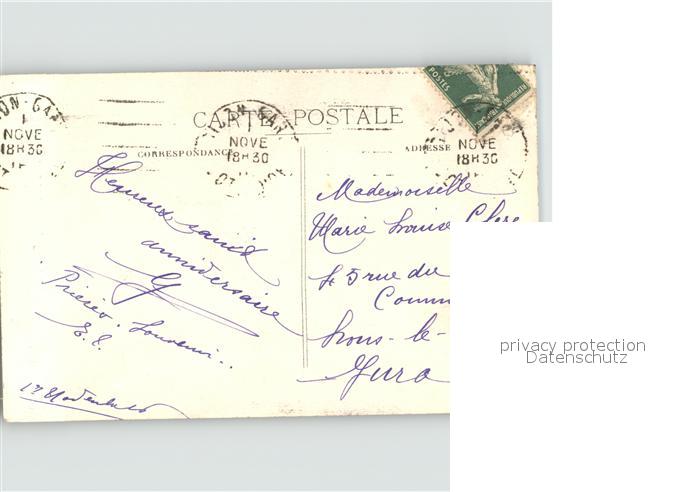 CARTE POSTALE
CORRESPONDANCE
ADRESSE
NOVE
18H30
NOVE
18H30
NOVE
18H30
POSTES
Heureux
anniversaire
Prières. Souvenir..
E.E.
Mademoiselle
Marie Louise
5 rue du
Comm
Lons-le-
Jura
privacy protection
Datenschutz